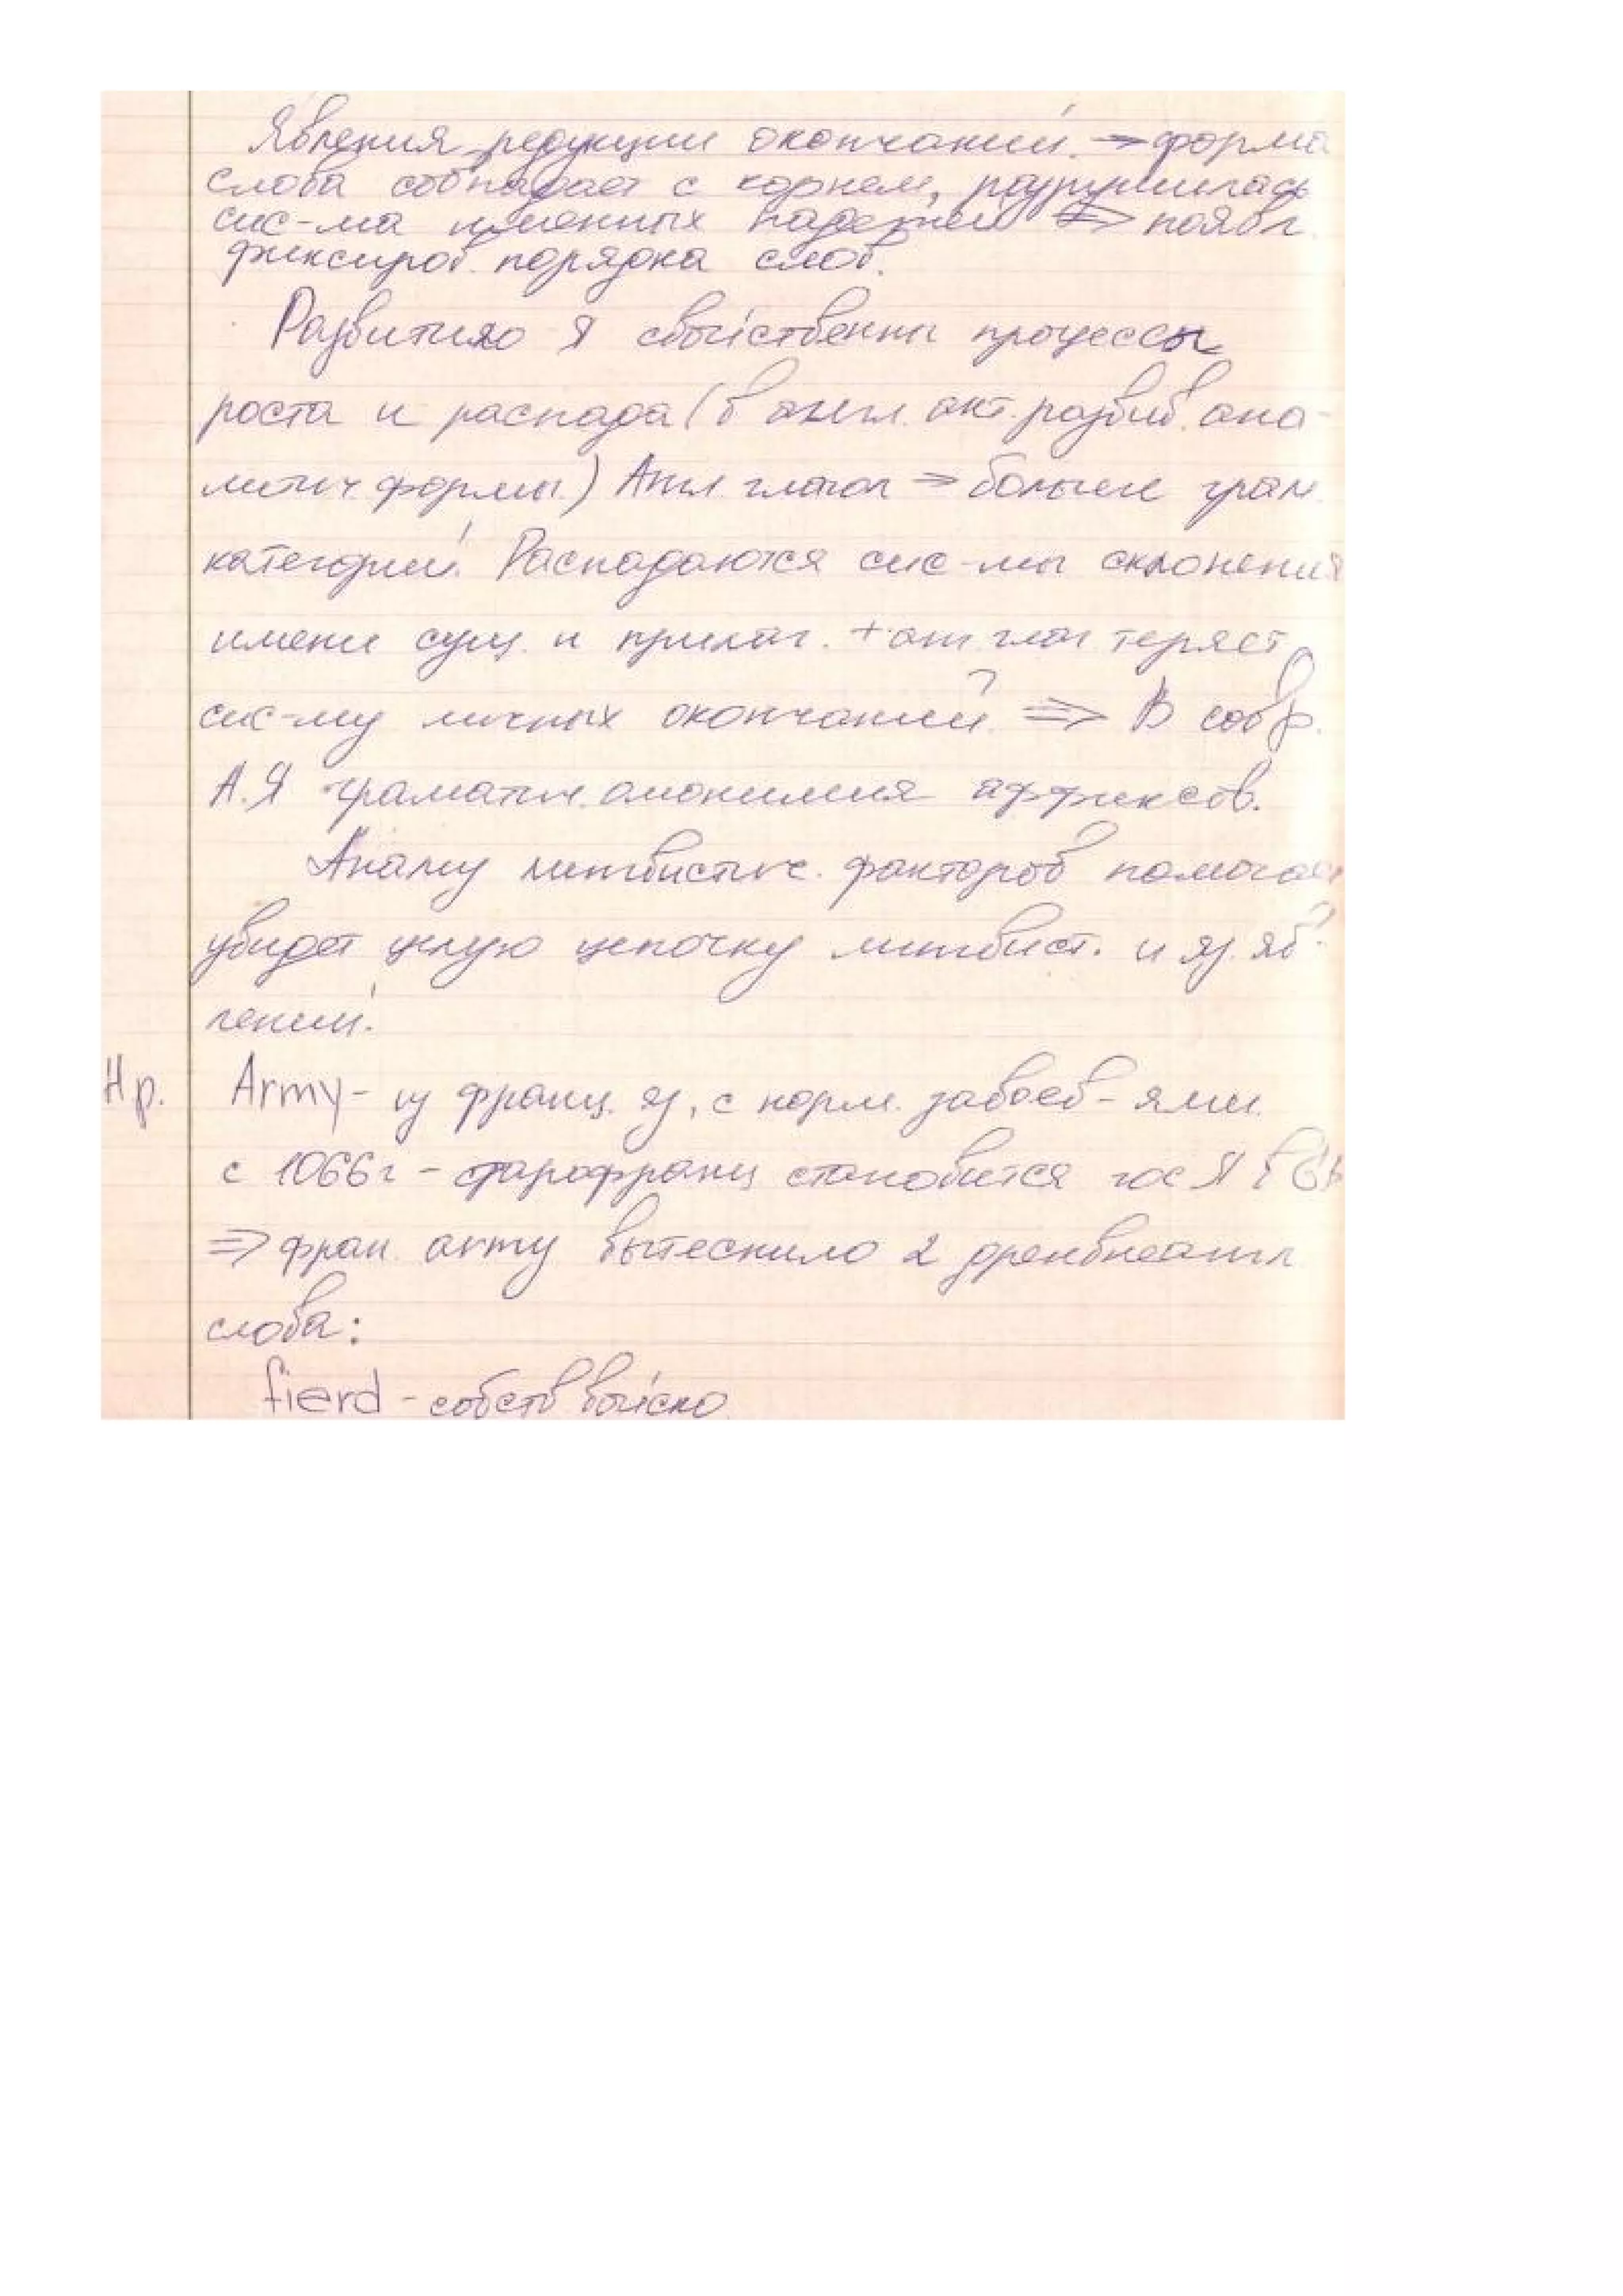 Явления редукции окончаний. → форма
слова совпадает с корнем, разрушилась
сис-ма именных падежей ⇒ появл.
фиксиров. порядка слов.
Развитию Я свойственны процессы
роста и распада (в англ. акт. развив. ана-
литич. формы.) Англ. глагол ⇒ больше грам.
категорий. Распадаются сис-мы склонения
имени сущ. и прилаг. + анг. глаг. теряет
сис-му личных окончаний ⇒ В совр.
А.Я граматич. омонимия аффиксов.
Анализ лингвистич. факторов помогает
увидет целую цепочку лингвист. и яз. яв-
лений.
Нр. Army - из франц. яз, с норм. завоев-ями.
с 1066г - старофранц становится гос Я в
⇒ фран. army вытеснило 2 древнеангл
слова:
fierd - собств войско